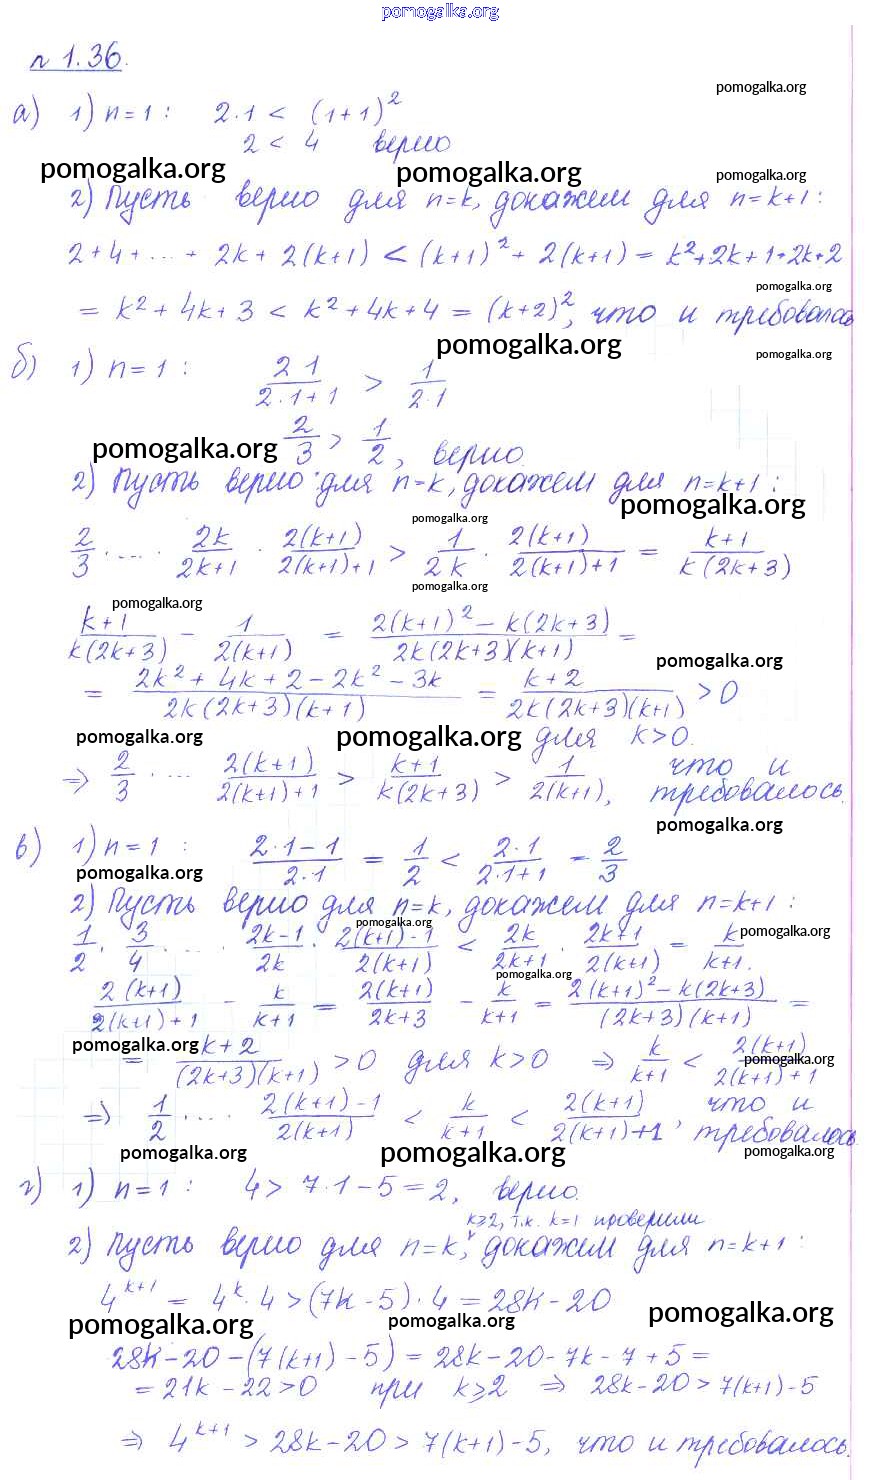 pomogalka.org
n 1.36.
pomogalka.org
а) 1) n=1 : 2·1 < (1+1)²
2 < 4 верно
pomogalka.org pomogalka.org pomogalka.org
2) Пусть верно для n=k, докажем для n=k+1 :
2+4+ ... + 2k+2(k+1) < (k+1)² + 2(k+1) = k²+2k+1+2k+2
pomogalka.org
= k²+4k+3 < k²+4k+4 = (k+2)², что и требовалось
pomogalka.org pomogalka.org
б) 1) n=1 : 2 1/(2·1+1) > 1/(2·1)
2/3 > 1/2, верно
pomogalka.org
2) Пусть верно для n=k, докажем для n=k+1 :
pomogalka.org
pomogalka.org
2/3 · ... · 2k/(2k+1) · 2(k+1)/(2(k+1)+1) > 1/(2k) · 2(k+1)/(2(k+1)+1) = (k+1)/(k(2k+3))
pomogalka.org
pomogalka.org
(k+1)/(k(2k+3)) - 1/(2(k+1)) = (2(k+1)²-k(2k+3))/(2k(2k+3)(k+1)) =
pomogalka.org
= (2k²+4k+2-2k²-3k)/(2k(2k+3)(k+1)) = (k+2)/(2k(2k+3)(k+1)) > 0
pomogalka.org pomogalka.org для k>0.
⇒ 2/3 · ... 2(k+1)/(2(k+1)+1) > (k+1)/(k(2k+3)) > 1/(2(k+1)), что и требовалось.
pomogalka.org
в) 1) n=1 : (2·1-1)/(2·1) = 1/2 < (2·1)/(2·1+1) = 2/3
pomogalka.org
2) Пусть верно для n=k, докажем для n=k+1 :
pomogalka.org
1/2 · 3/4 · ... · (2k-1)/(2k) · (2(k+1)-1)/(2(k+1)) < 2k/(2k+1) · (2k+1)/(2(k+1)) = k/(k+1).
pomogalka.org
pomogalka.org
2(k+1)/(2(k+1)+1) - k/(k+1) = 2(k+1)/(2k+3) - k/(k+1) = (2(k+1)²-k(2k+3))/((2k+3)(k+1)) =
pomogalka.org
= (k+2)/((2k+3)(k+1)) > 0 для k>0 ⇒ k/(k+1) < 2(k+1)/(2(k+1)+1)
pomogalka.org
⇒ 1/2 · ... (2(k+1)-1)/(2(k+1)) < k/(k+1) < 2(k+1)/(2(k+1)+1), что и требовалось.
pomogalka.org pomogalka.org pomogalka.org
г) 1) n=1 : 4 > 7·1-5=2, верно.
k⩾2, т.к. k=1 проверили
2) Пусть верно для n=k, докажем для n=k+1 :
4^(k+1) = 4^k · 4 > (7k-5)·4 = 28k-20
pomogalka.org pomogalka.org pomogalka.org
28k-20-(7(k+1)-5) = 28k-20-7k-7+5 =
= 21k-22>0 при k⩾2 ⇒ 28k-20 > 7(k+1)-5
⇒ 4^(k+1) > 28k-20 > 7(k+1)-5, что и требовалось.